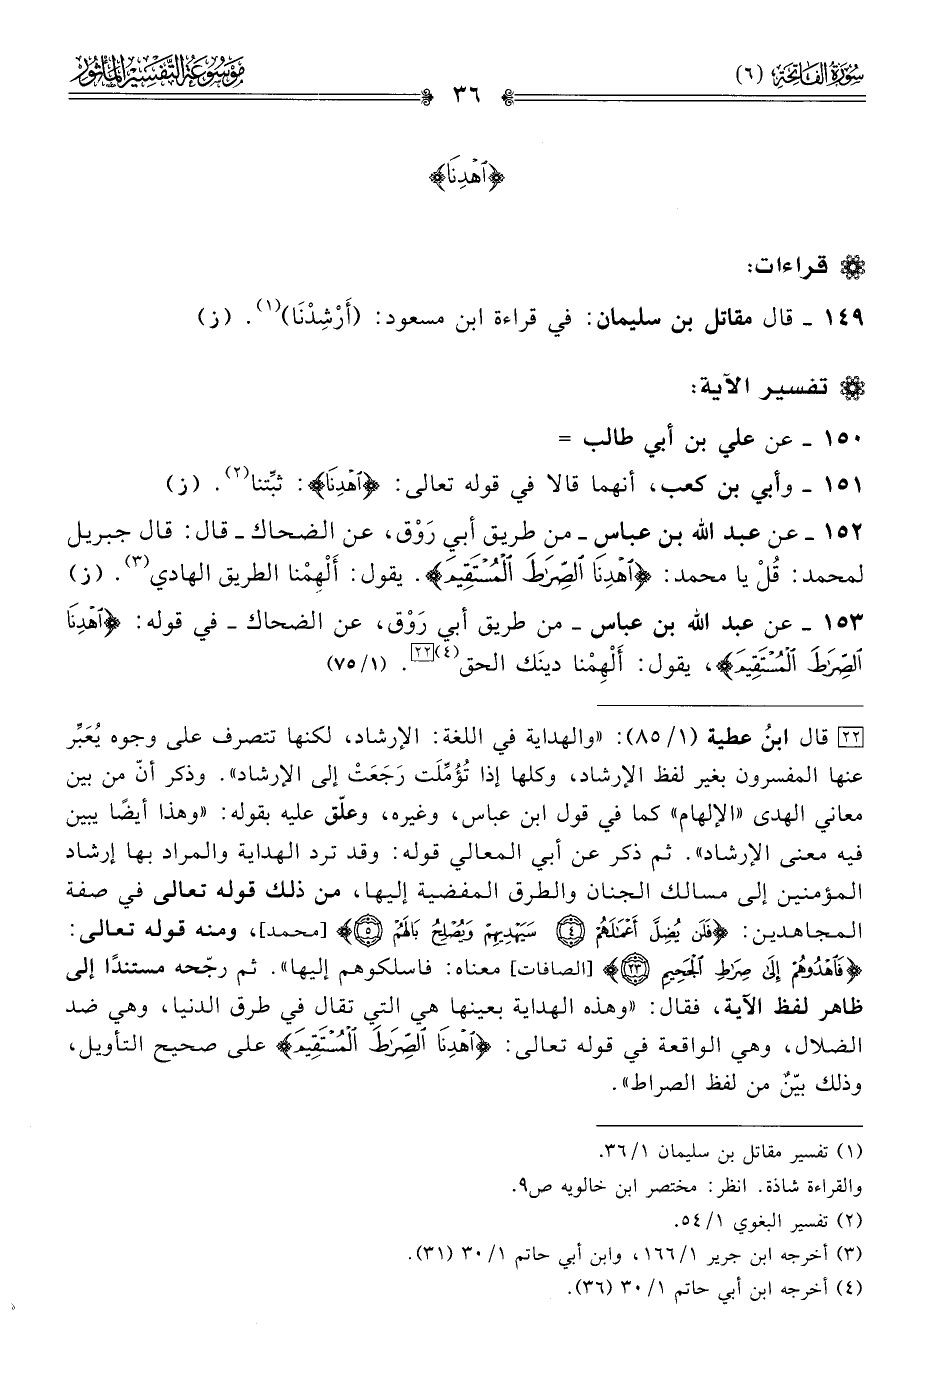 سُورَةُ الفَاتِحَةِ (٦)
٣٦
مَوْسُوعَة التَّفْسِيرِ المَأْثُور
﴿ٱهْدِنَا﴾
قراءات:
١٤٩ ـ قال مقاتل بن سليمان: في قراءة ابن مسعود: (أَرْشِدْنَا)(١). (ز)
تفسير الآية:
١٥٠ ـ عن علي بن أبي طالب =
١٥١ ـ وأبي بن كعب، أنهما قالا في قوله تعالى: ﴿ٱهْدِنَا﴾: ثبِّتنا(٢). (ز)
١٥٢ ـ عن عبد الله بن عباس ـ من طريق أبي رَوْق، عن الضحاك ـ قال: قال جبريل
لمحمد: قُلْ يا محمد: ﴿ٱهْدِنَا ٱلصِّرَٰطَ ٱلْمُسْتَقِيمَ﴾. يقول: أَلْهِمْنا الطريق الهادي(٣). (ز)
١٥٣ ـ عن عبد الله بن عباس ـ من طريق أبي رَوْق، عن الضحاك ـ في قوله: ﴿ٱهْدِنَا
ٱلصِّرَٰطَ ٱلْمُسْتَقِيمَ﴾، يقول: أَلْهِمْنا دينَك الحق(٤)[٢٢]. (١/ ٧٥)
[٢٢] قال ابنُ عطية (١/ ٨٥): «والهداية في اللغة: الإرشاد، لكنها تتصرف على وجوه يُعَبِّر
عنها المفسرون بغير لفظ الإرشاد، وكلها إذا تُؤُمِّلَت رَجَعَتْ إلى الإرشاد». وذكر أنّ من بين
معاني الهدى «الإلهام» كما في قول ابن عباس، وغيره، وعلّق عليه بقوله: «وهذا أيضًا يبين
فيه معنى الإرشاد». ثم ذكر عن أبي المعالي قوله: وقد ترد الهداية والمراد بها إرشاد
المؤمنين إلى مسالك الجنان والطرق المفضية إليها، من ذلك قوله تعالى في صفة
المجاهدين: ﴿فَلَن يُضِلَّ أَعْمَٰلَهُمْ ٤ سَيَهْدِيهِمْ وَيُصْلِحُ بَالَهُمْ ٥﴾ [محمد]، ومنه قوله تعالى:
﴿فَٱهْدُوهُمْ إِلَىٰ صِرَٰطِ ٱلْجَحِيمِ ٢٣﴾ [الصافات] معناه: فاسلكوهم إليها». ثم رجّحه مستندًا إلى
ظاهر لفظ الآية، فقال: «وهذه الهداية بعينها هي التي تقال في طرق الدنيا، وهي ضد
الضلال، وهي الواقعة في قوله تعالى: ﴿ٱهْدِنَا ٱلصِّرَٰطَ ٱلْمُسْتَقِيمَ﴾ على صحيح التأويل،
وذلك بيّنٌ من لفظ الصراط».
(١) تفسير مقاتل بن سليمان ١/ ٣٦.
والقراءة شاذة. انظر: مختصر ابن خالويه ص٩.
(٢) تفسير البغوي ١/ ٥٤.
(٣) أخرجه ابن جرير ١/ ١٦٦، وابن أبي حاتم ١/ ٣٠ (٣١).
(٤) أخرجه ابن أبي حاتم ١/ ٣٠ (٣٦).